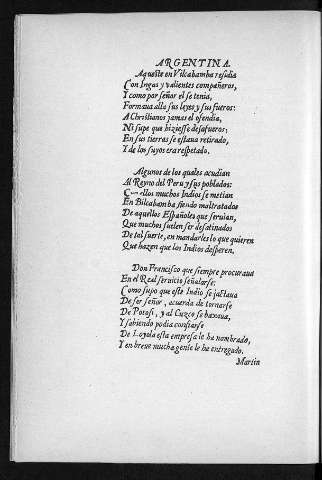 ARGENTINA.
Aqueste en Vilcabamba residia
Con Ingas y valientes compañeros,
Y como por señor el se tenia,
Formaua alla sus leyes y sus fueros:
A Christianos jamas el ofendia,
Ni supe que hiziesse desafueros:
En sus tierras se estaua retirado,
Y de los suyos era respetado.
Algunos de los quales acudian
Al Reyno del Peru y sus poblados:
C ellos muchos Indios se metian
En Bilcabamba siendo maltratados
De aquellos Españoles que seruian,
Que muchos suelen ser desatinados
De tal suerte, en mandarles lo que quieren
Que hazen que los Indios desperen.
Don Francisco que siempre procuraua
En el Real seruicio señalarse:
Como supo que este Indio se jactaua
De ser señor, acuerda de tornarse
De Potosi, y al Cuzco se baxaua,
Y sabiendo podia confiarse
De Loyola esta empresa le ha nombrado,
Y en breue mucha gente le ha entregado.
Martin